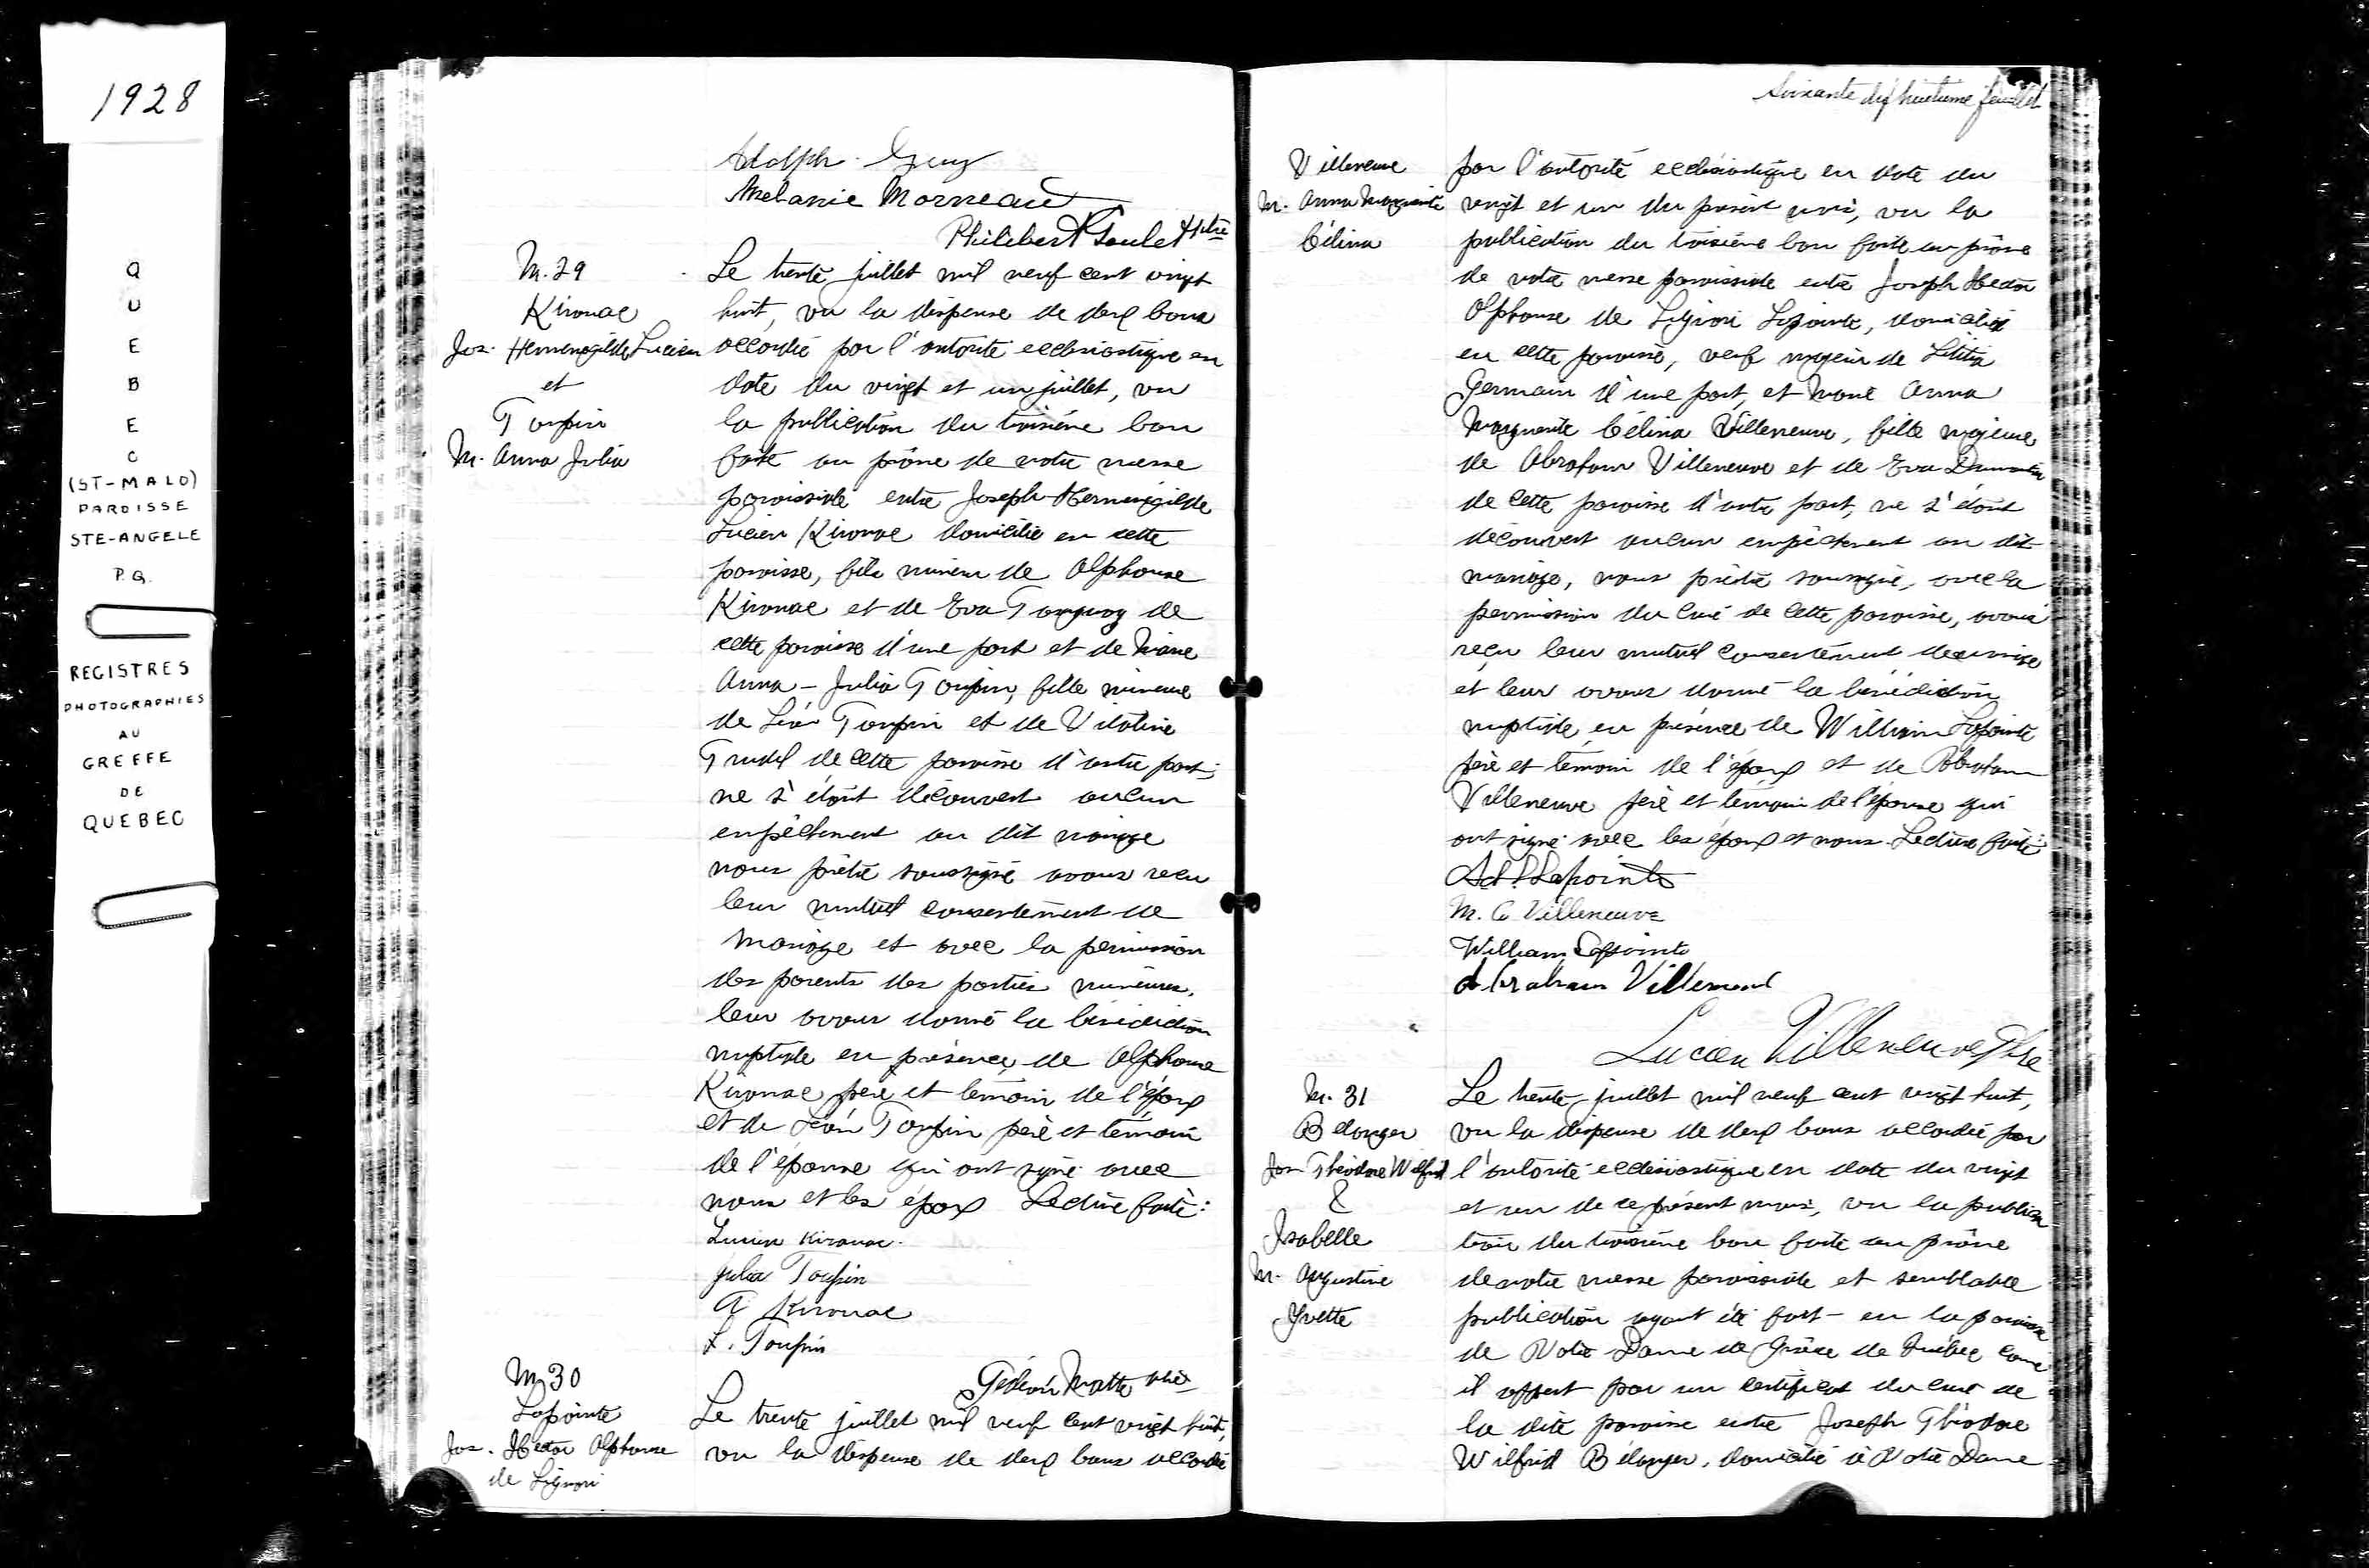 1928
QUEBEC
(ST-MALO)
PAROISSE
STE-ANGELE
P.Q.
REGISTRES
PHOTOGRAPHIES
AU
GREFFE
DE
QUEBEC
Adolph Guy
Melanie Morneau
Philibert Goulet Ptre
M. 29
Kirouac
Jos. Hermenegilde Lucien
et
Toupin
M. Anna Julia
Le trente juillet mil neuf cent vingt
huit, vu la dispense de deux bans
accordée par l'autorité ecclésiastique en
date du vingt et un juillet, vu
la publication du troisième ban
faite au prône de notre messe
paroissiale entre Joseph-Hermenégilde
Lucien Kirouac domicilié en cette
paroisse, fils mineur de Alphonse
Kirouac et de Eva Tanguay de
cette paroisse d'une part et de Marie
Anna-Julia Toupin, fille mineure
de Léon Toupin et de Vitaline
Trudel de cette paroisse d'autre part;
ne s'étant découvert aucun
empêchement au dit mariage
nous prêtre soussigné avons reçu
leur mutuel consentement de
mariage et avec la permission
des parents des parties mineures,
leur avons donné la bénédiction
nuptiale en présence de Alphonse
Kirouac père et témoin de l'époux
et de Léon Toupin père et témoin
de l'épouse qui ont signé avec
nous et les époux Lecture faite:
Lucien Kirouac.
Julia Toupin
A Kirouac
L. Toupin
Gédéon Matte ptre
M. 30
Lapointe
Jos. Hector Alphonse
de Liguori
Le trente juillet mil neuf cent vingt huit,
vu la dispense de deux bans accordée
Soixante dix huitième feuillet
Villeneuve
M. Anna Marguerite
Célina
par l'autorité ecclésiastique en date du
vingt et un du présent mois, vu la
publication du troisième ban faite au prône
de notre messe paroissiale entre Joseph Hector
Alphonse de Liguori Lapointe, domicilié
en cette paroisse, veuf majeur de Létitia
Germain d'une part, et Marie Anna
Marguerite Célina Villeneuve, fille majeure
de Abraham Villeneuve et de Eva
de cette paroisse d'autre part, ne s'étant
découvert aucun empêchement au dit
mariage, nous prêtre soussigné, avec la
permission du curé de cette paroisse, avons
reçu leur mutuel consentement de mariage
et leur avons donné la bénédiction
nuptiale en présence de William Lapointe
père et témoin de l'époux et de Abraham
Villeneuve père et témoin de l'épouse qui
ont signé avec les époux et nous. Lecture faite:
Lapointe
M. C Villeneuve
William Lapointe
Abraham Villeneuve
Lucien Villeneuve Ptre
M. 31
Bélanger
Jos Théodore Wilfrid
&
Isabelle
M. Augustine
Yvette
Le trente juillet mil neuf cent vingt huit,
vu la dispense de deux bans accordée par
l'autorité ecclésiastique en date du vingt
et un de ce présent mois, vu la publica
tion du troisième ban faite au prône
de notre messe paroissiale et semblable
publication ayant été fait en la paroisse
de Notre Dame de Grâce de Québec comme
il appert par un certificat du curé de
la dite paroisse entre Joseph Théodore
Wilfrid Bélanger, domicilié à Notre Dame